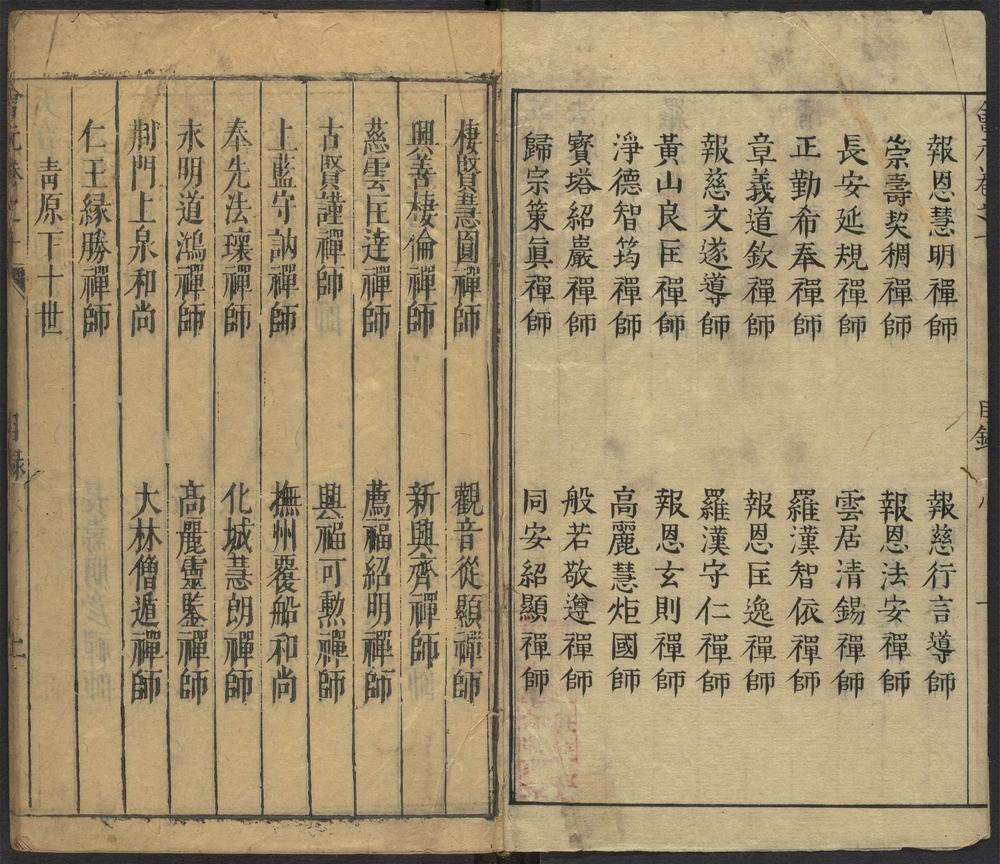 報恩慧明禪師 報慈行言導師
崇壽契稠禪師 報恩法安禪師
長安延規禪師 雲居清錫禪師
正勤希奉禪師 羅漢智依禪師
章義道欽禪師 報恩匡逸禪師
報慈文遂導師 羅漢守仁禪師
黃山良匡禪師 報恩玄則禪師
淨德智筠禪師 高麗慧炬國師
寶塔紹巖禪師 般若敬遵禪師
歸宗策真禪師 同安紹顯禪師
棲賢慧圓禪師 觀音從顯禪師
興善棲倫禪師 新興齊禪師
慈雲匡達禪師 薦福紹明禪師
古賢謹禪師 興福可勲禪師
上藍守訥禪師 撫州覆船和尚
奉先法瓌禪師 化城慧朗禪師
永明道鴻禪師 高麗靈鑒禪師
荊門上泉和尚 大林僧遁禪師
仁王緣勝禪師
青原下十世
目錄